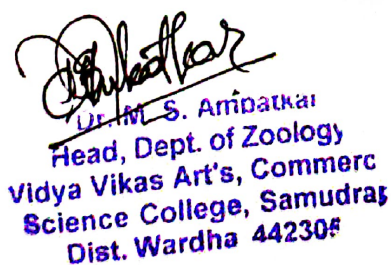 Dr. M. S. Ambatkar
Head, Dept. of Zoology
Vidya Vikas Art's, Commerc
Science College, Samudrap
Dist. Wardha 442305